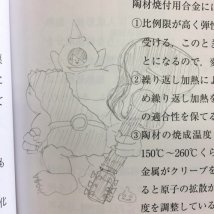 陶材焼付用合金には
①比例限が高く弾性
受ける。このとき
とになるので，変
②繰り返し加熱によ
め繰り返し加熱を
の適合性を保てる
③陶材の焼成温度
150℃〜260℃くら
金属がクリープを
ると原子の拡散が
度を調整している